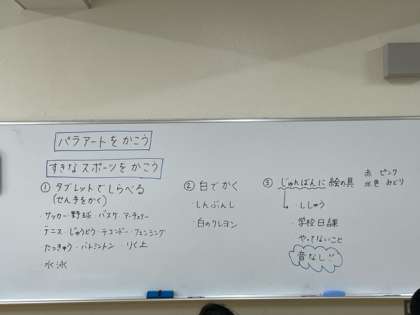 パラアートをかこう
すきなスポーツをかこう
① タブレットでしらべる
(せん手をかく)
・サッカー・野球 バスケ アーチェリー
テニス・じゅうどう・テコンドー・フェンシング
たっきゅう・バトミントン・りく上
水泳
② 白でかく
・しんぶんし
・白のクレヨン
③ じゅんばんに 絵の具
赤 ピンク
水色 みどり
ししゅう
・学校日課
やってないこと
音なし!!